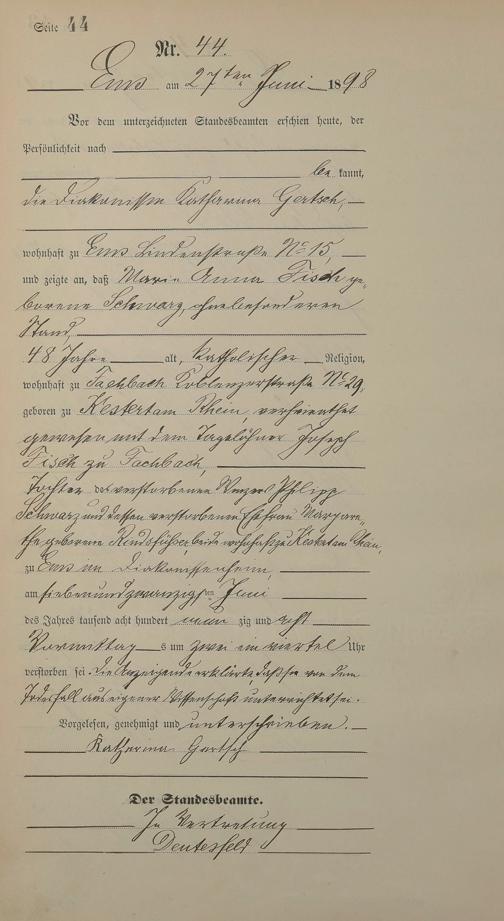 Seite 44
Nr. 44.
Ems am 27ten Juni 1898
Vor dem unterzeichneten Standesbeamten erschien heute, der
Persönlichkeit nach
be kannt,
die Diakonissin Katharina Gertsch,
wohnhaft zu Ems Lindenstraße No 15,
und zeigte an, daß Maria Anna Fisch ge-
borene Schwarz, ohne besonderen
Stand,
48 Jahre alt, katholischer Religion,
wohnhaft zu Fachbach Koblenzerstraße No 29,
geboren zu Kestert am Rhein, verheirathet
gewesen mit dem Tagelöhner Joseph
Fisch zu Fachbach,
Tochter des verstorbenen Winzers Philipp
Schwarz und dessen verstorbenen Ehefrau Margare-
the geborene beide wohnhaft zu Kestert am Rhein,
zu Ems im Diakonissenheim,
am siebenundzwanzigsten Juni
des Jahres tausend acht hundert neun zig und acht
Vormittag s um zwei ein viertel Uhr
verstorben sei. Die Anzeigende erklärte, daß sie von dem
Todesfall aus eigener Wissenschaft unterrichtet sei.
Vorgelesen, genehmigt und unterschrieben.
Katharina Gertsch
Der Standesbeamte.
In Vertretung